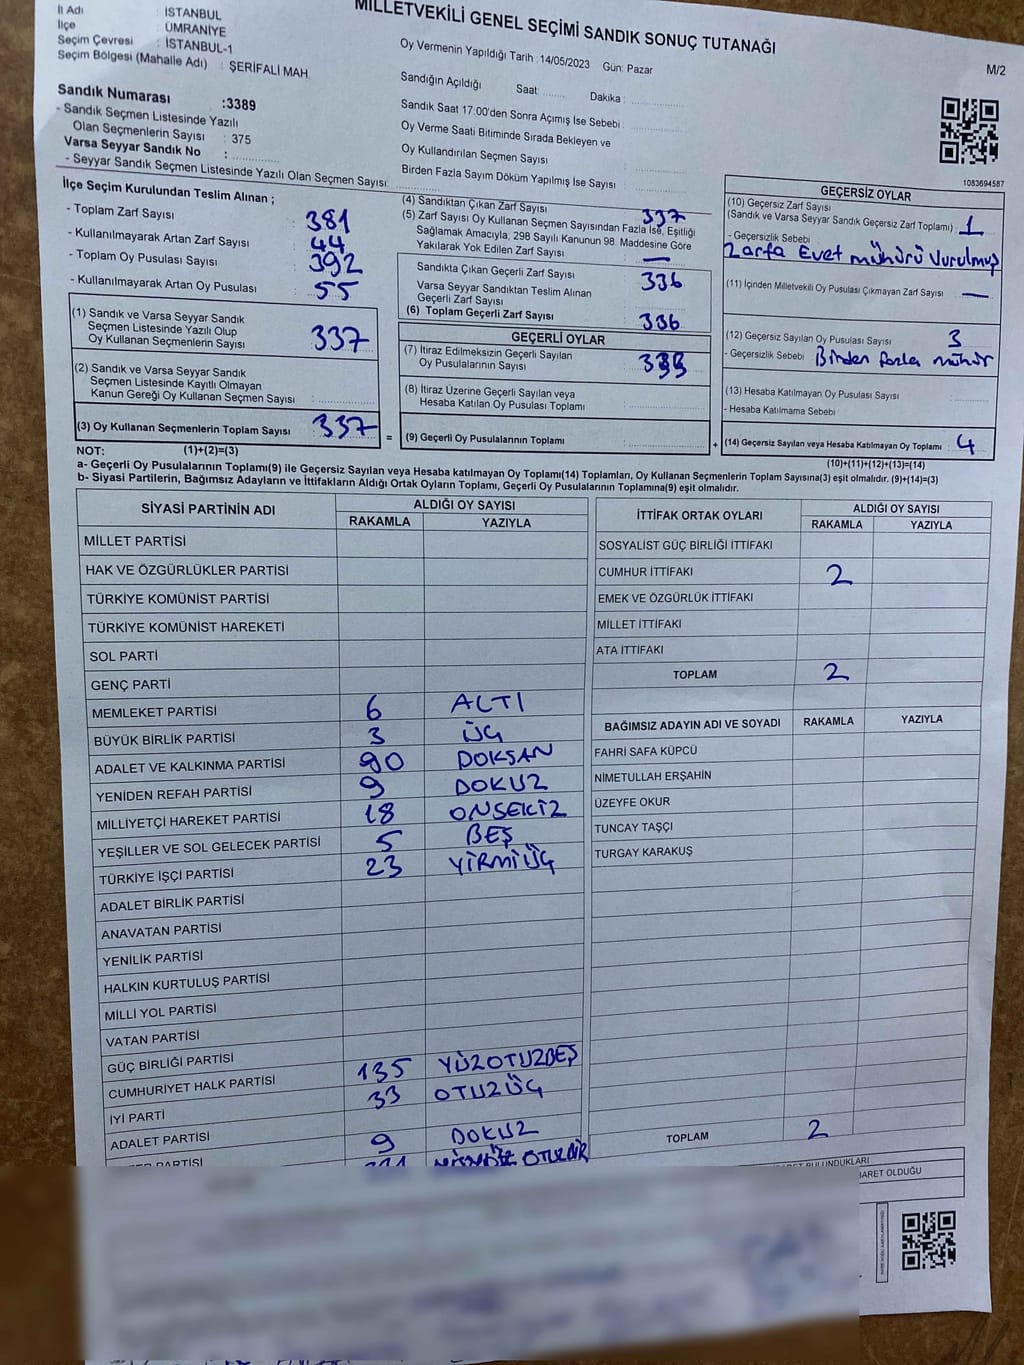 MİLLETVEKİLİ GENEL SEÇİMİ SANDIK SONUÇ TUTANAĞI
M/2
İl Adı : İSTANBUL
İlçe : ÜMRANİYE
Seçim Çevresi : İSTANBUL-1
Seçim Bölgesi (Mahalle Adı) : ŞERİFALİ MAH.
Sandık Numarası :3389
- Sandık Seçmen Listesinde Yazılı
Olan Seçmenlerin Sayısı : 375
Varsa Seyyar Sandık No :
- Seyyar Sandık Seçmen Listesinde Yazılı Olan Seçmen Sayısı:
Oy Vermenin Yapıldığı Tarih :14/05/2023 Gün: Pazar
Sandığın Açıldığı Saat: Dakika :
Sandık Saat 17:00'den Sonra Açımış İse Sebebi :
Oy Verme Saati Bitiminde Sırada Bekleyen ve
Oy Kullandırılan Seçmen Sayısı :
Birden Fazla Sayım Döküm Yapılmış İse Sayısı :
1083694587
İlçe Seçim Kurulundan Teslim Alınan ;
- Toplam Zarf Sayısı : 381
- Kullanılmayarak Artan Zarf Sayısı : 44
- Toplam Oy Pusulası Sayısı : 392
- Kullanılmayarak Artan Oy Pusulası : 55
(1) Sandık ve Varsa Seyyar Sandık
Seçmen Listesinde Yazılı Olup
Oy Kullanan Seçmenlerin Sayısı : 337
(2) Sandık ve Varsa Seyyar Sandık
Seçmen Listesinde Kayıtlı Olmayan
Kanun Gereği Oy Kullanan Seçmen Sayısı :
(3) Oy Kullanan Seçmenlerin Toplam Sayısı : 337
(1)+(2)=(3)
(4) Sandıktan Çıkan Zarf Sayısı : 337
(5) Zarf Sayısı Oy Kullanan Seçmen Sayısından Fazla İse, Eşitliği
Sağlamak Amacıyla, 298 Sayılı Kanunun 98. Maddesine Göre
Yakılarak Yok Edilen Zarf Sayısı : —
Sandıkta Çıkan Geçerli Zarf Sayısı : 336
Varsa Seyyar Sandıktan Teslim Alınan
Geçerli Zarf Sayısı
(6) Toplam Geçerli Zarf Sayısı : 336
GEÇERLİ OYLAR
(7) İtiraz Edilmeksizin Geçerli Sayılan
Oy Pusulalarının Sayısı : 333
(8) İtiraz Üzerine Geçerli Sayılan veya
Hesaba Katılan Oy Pusulası Toplamı :
= (9) Geçerli Oy Pusulalarının Toplamı :
GEÇERSİZ OYLAR
(10) Geçersiz Zarf Sayısı
(Sandık ve Varsa Seyyar Sandık Geçersiz Zarf Toplamı) : 1
- Geçersizlik Sebebi
Zarfa Evet mührü Vurulmuş
(11) İçinden Milletvekili Oy Pusulası Çıkmayan Zarf Sayısı : —
(12) Geçersiz Sayılan Oy Pusulası Sayısı : 3
- Geçersizlik Sebebi : Birden fazla mühür
(13) Hesaba Katılmayan Oy Pusulası Sayısı :
- Hesaba Katılmama Sebebi
+ (14) Geçersiz Sayılan veya Hesaba Katılmayan Oy Toplamı : 4
(10)+(11)+(12)+(13)=(14)
NOT:
a- Geçerli Oy Pusulalarının Toplamı(9) ile Geçersiz Sayılan veya Hesaba katılmayan Oy Toplamı(14) Toplamları, Oy Kullanan Seçmenlerin Toplam Sayısına(3) eşit olmalıdır. (9)+(14)=(3)
b- Siyasi Partilerin, Bağımsız Adayların ve İttifakların Aldığı Ortak Oyların Toplamı, Geçerli Oy Pusulalarının Toplamına(9) eşit olmalıdır.
SİYASİ PARTİNİN ADI ALDIĞI OY SAYISI
RAKAMLA YAZIYLA
MİLLET PARTİSİ
HAK VE ÖZGÜRLÜKLER PARTİSİ
TÜRKİYE KOMÜNİST PARTİSİ
TÜRKİYE KOMÜNİST HAREKETİ
SOL PARTİ
GENÇ PARTİ
MEMLEKET PARTİSİ 6 ALTI
BÜYÜK BİRLİK PARTİSİ 3 ÜÇ
ADALET VE KALKINMA PARTİSİ 90 DOKSAN
YENİDEN REFAH PARTİSİ 9 DOKUZ
MİLLİYETÇİ HAREKET PARTİSİ 18 ONSEKİZ
YEŞİLLER VE SOL GELECEK PARTİSİ 5 BEŞ
TÜRKİYE İŞÇİ PARTİSİ 23 YİRMİÜÇ
ADALET BİRLİK PARTİSİ
ANAVATAN PARTİSİ
YENİLİK PARTİSİ
HALKIN KURTULUŞ PARTİSİ
MİLLİ YOL PARTİSİ
VATAN PARTİSİ
GÜÇ BİRLİĞİ PARTİSİ
CUMHURİYET HALK PARTİSİ 135 YÜZOTUZBEŞ
İYİ PARTİ 33 OTUZÜÇ
ADALET PARTİSİ
9 DOKUZ
PARTİSİ OTUZBİR
İTTİFAK ORTAK OYLARI ALDIĞI OY SAYISI
RAKAMLA YAZIYLA
SOSYALİST GÜÇ BİRLİĞİ İTTİFAKI
CUMHUR İTTİFAKI 2
EMEK VE ÖZGÜRLÜK İTTİFAKI
MİLLET İTTİFAKI
ATA İTTİFAKI
TOPLAM 2
BAĞIMSIZ ADAYIN ADI VE SOYADI RAKAMLA YAZIYLA
FAHRİ SAFA KÜPCÜ
NİMETULLAH ERŞAHİN
ÜZEYFE OKUR
TUNCAY TAŞÇI
TURGAY KARAKUŞ
TOPLAM 2
BULUNDUKLARI
İBARET OLDUĞU